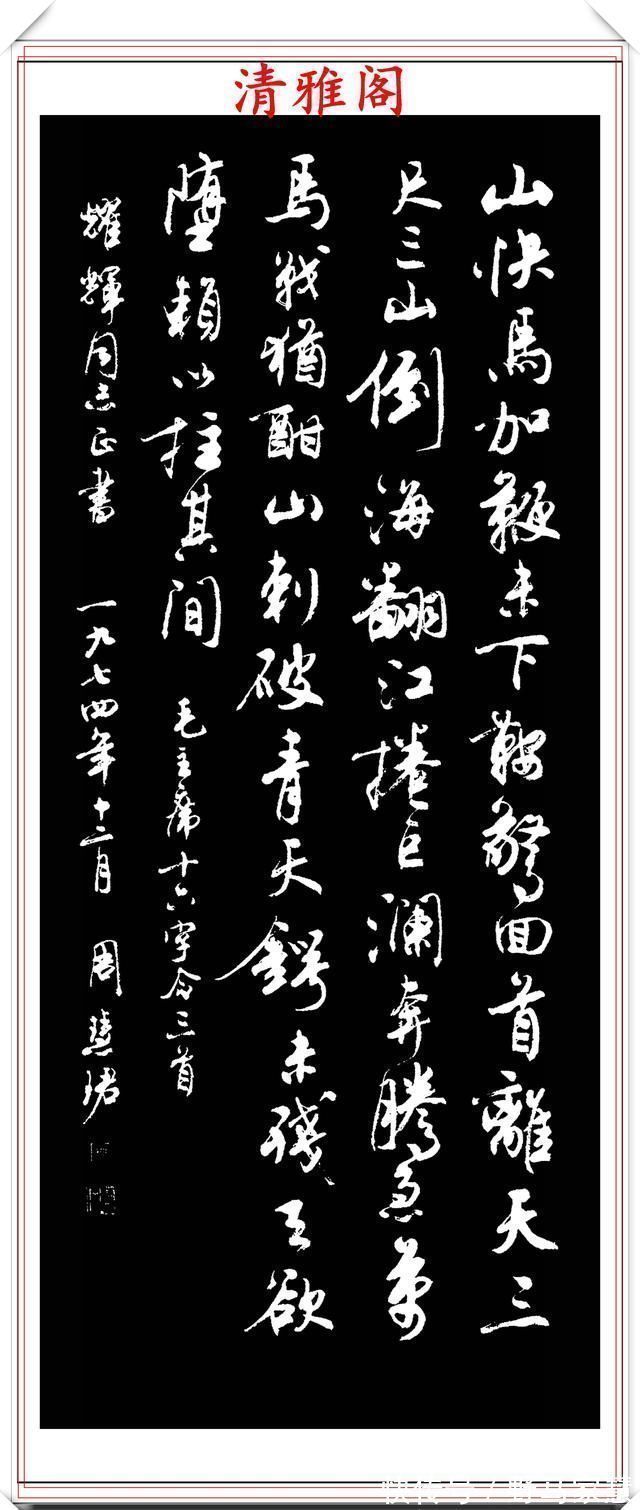 清雅阁
山快馬加鞭未下鞍驚回首離天三
尺三山倒海翻江捲巨瀾奔騰急萬
馬戰猶酣山刺破青天鍔未殘天欲
堕賴以拄其间 毛主席十六字令三首
耀輝同志正書 一九七四年十二月 周慧珺
快传号